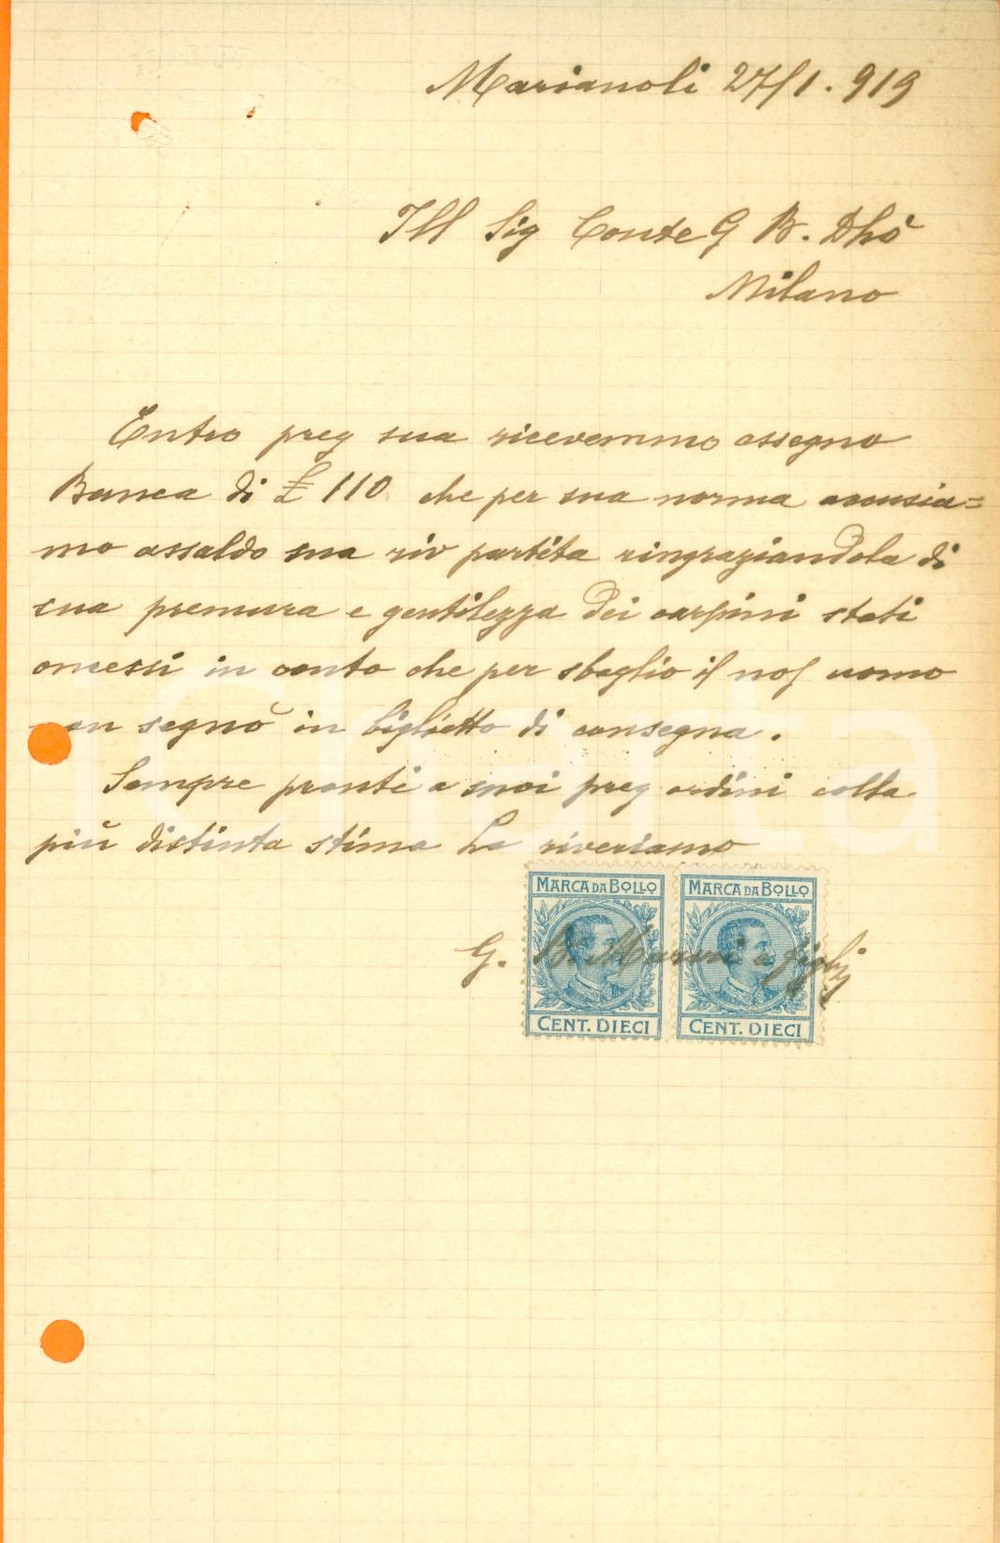 Marianoli 27/1.919
Ill Sig Conte G B. Dhò
Milano
Entro preg sua ricevemmo assegno
Banca di £ 110 che per sua norma accusia=
mo assaldo sua riv partita ringraziandola di
sua premura e gentilezza dei carpini stati
omessi in conto che per sbaglio il nos uomo
non segnò in biglietto di consegna.
Sempre pronti a suoi preg ordini colla
più distinta stima La riveriamo
G. B. e figli
MARCA DA BOLLO MARCA DA BOLLO
CENT. DIECI CENT. DIECI